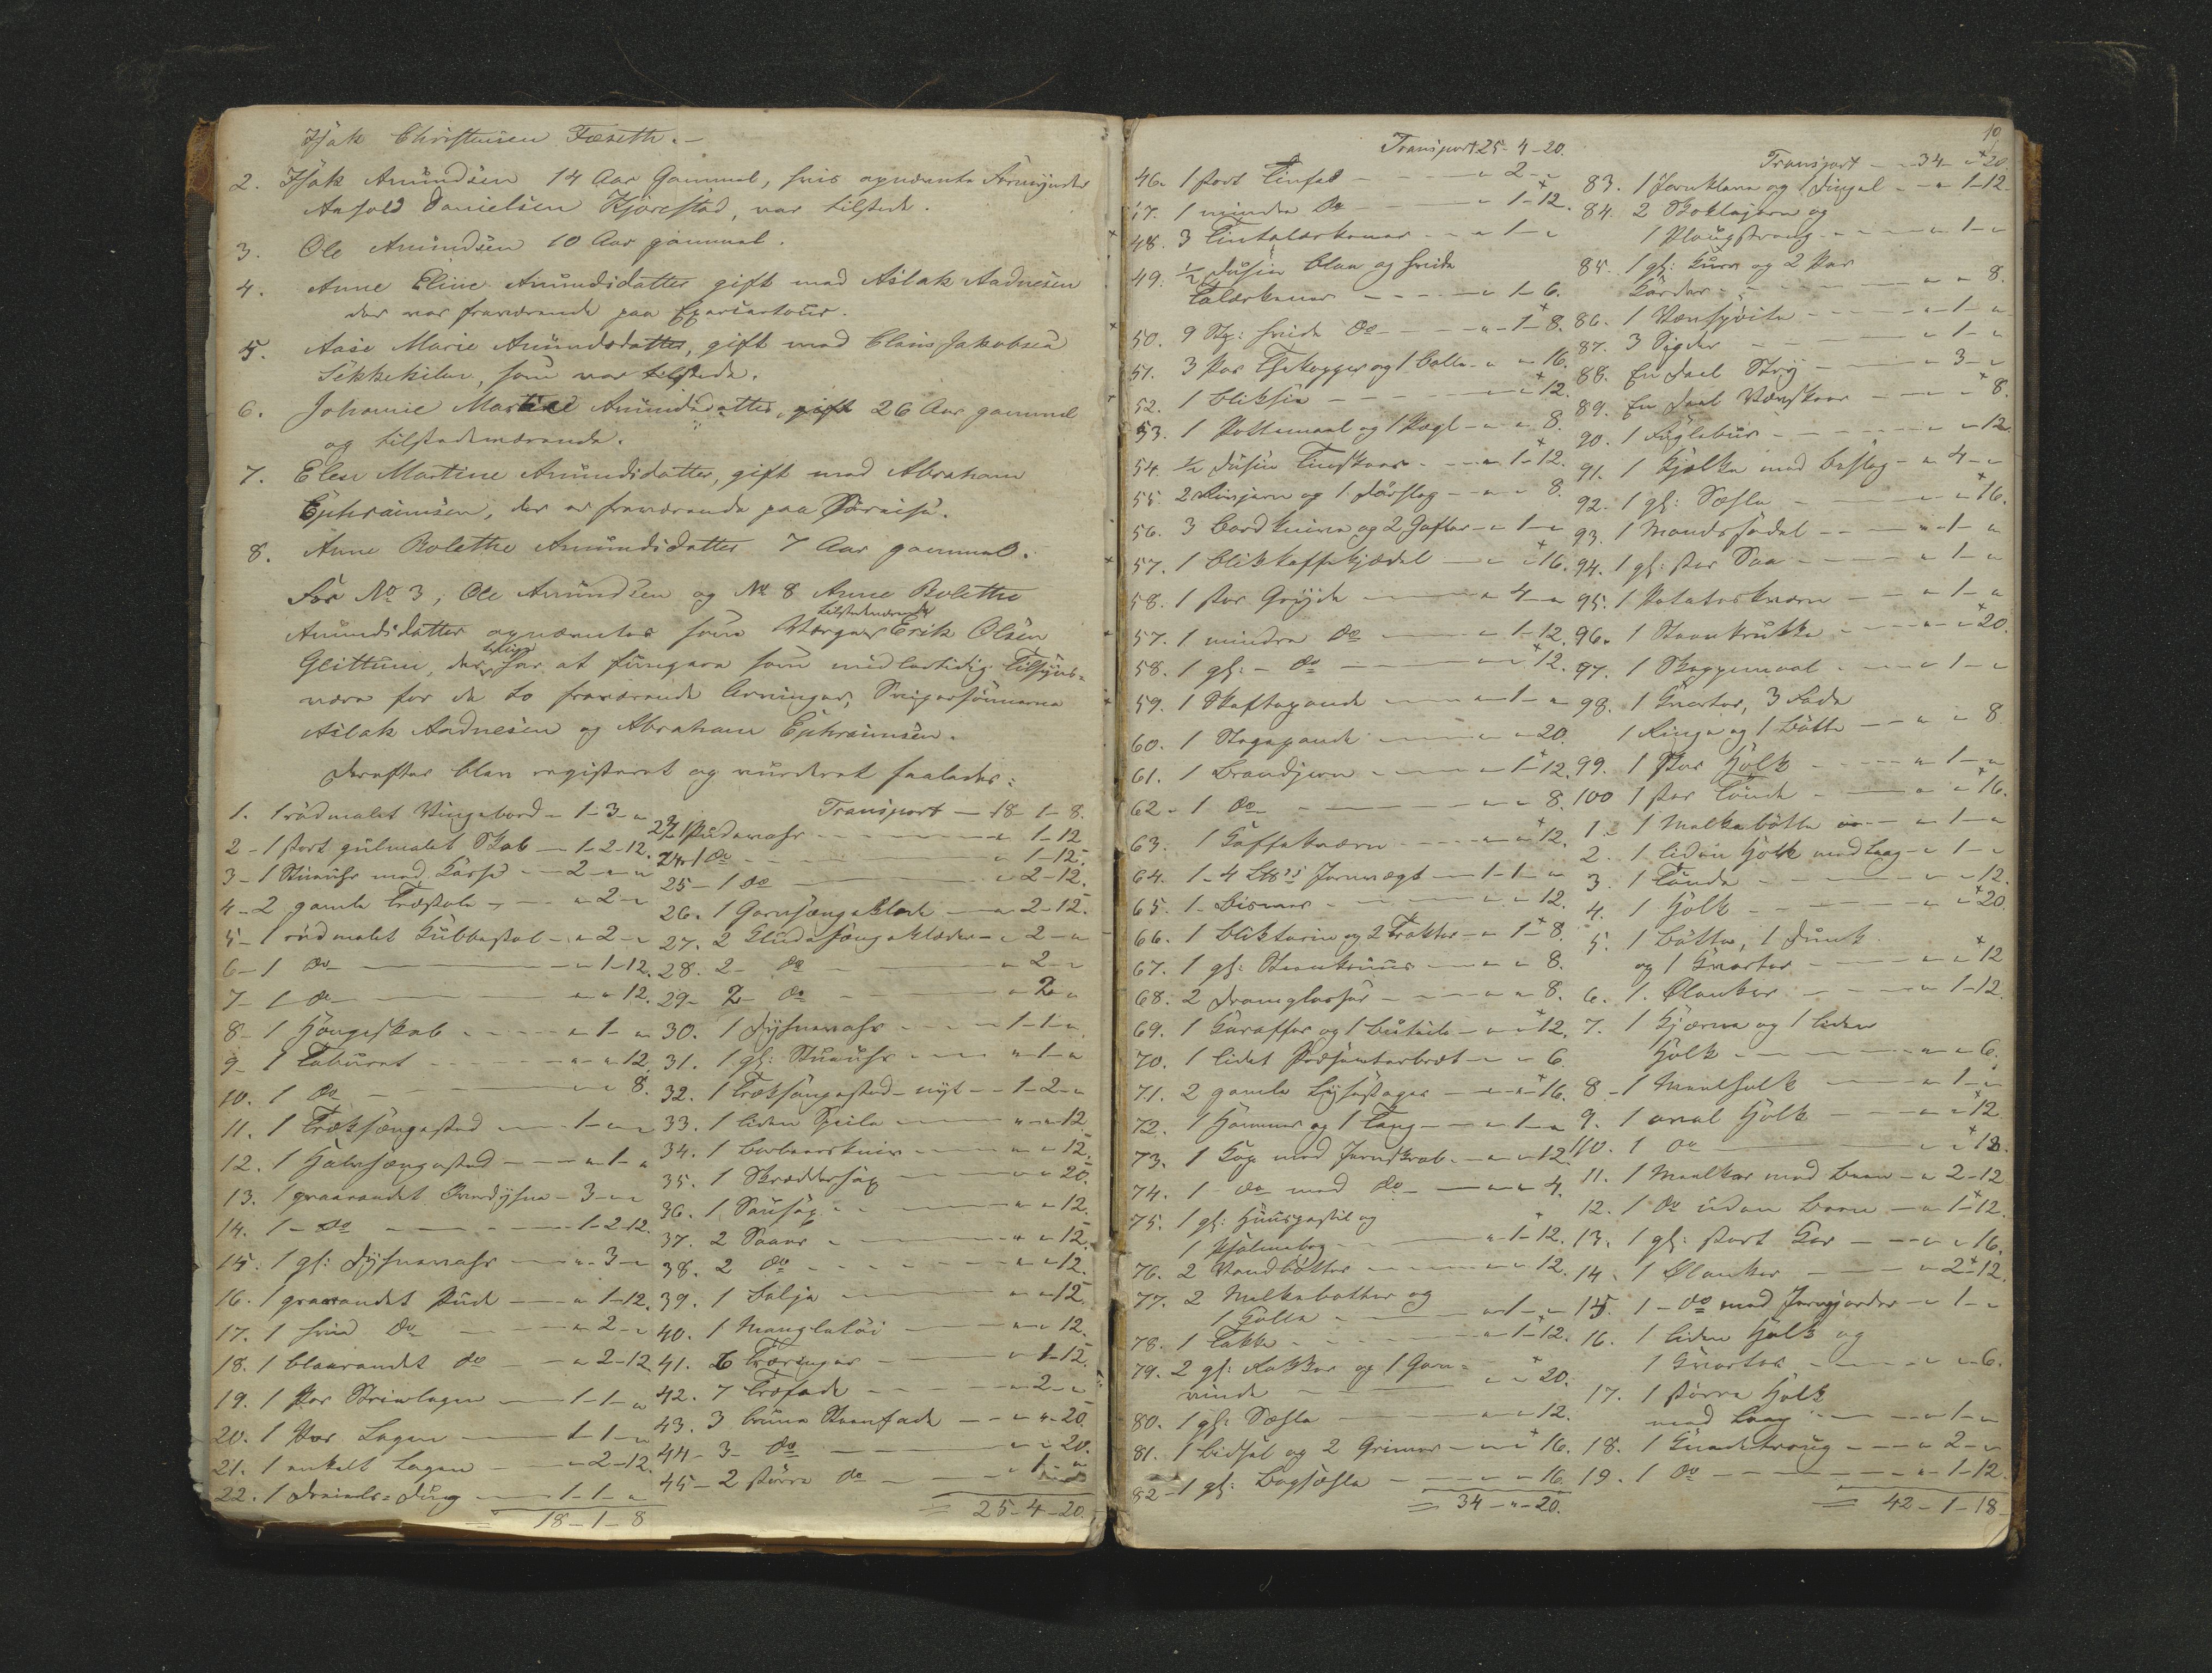 Isak Christensen Fæseth.-
2. Isak Amundsen 14 Aar Gammel, hvis opnævnte Formynder
Anfeld Danielsen Kjørestad, var tilstede.
3. Ole Amundsen 10 Aar gammel.
4. Anne Eline Amundsdatter gift med Aslak Aadnesen
der var fraværende paa
5. Aase Marie Amundsdatter, gift med Claus Jakobsen
Sekkekilen, som var tilstede.
6. Johanne Martine Amundsdatter, 26 Aar gammel
og tilstedeværende.
7. Elen Martine Amundsdatter, gift med Abraham
Ephraimsen, der er fraværende paa Søreise.
8. Anne Bolethe Amundsdatter 7 Aar gammel.
For No 3, Ole Amundsen og No 8 Anne Bolethe
tilstedeværende
Amundsdatter opnævntes som Værger Erik Olsen
Glittum, der tillige har at fungere som midlertidig Tilsyns-
værge for de to fraværende Arvinger, Svigersønnerne
Aslak Aadnesen og Abraham Ephraimsen.
Derefter blev registeret og vurderet saaledes:
1. 1 rødmalet Vingebord - 1-3-"
2 - 1 stort gulmalet Skab - 1-2-12.
3 - 1 Stueuhr med Kasse - 2-"-"
4 - 2 gamle Træstole - " - 2 - "
5 - 1 rødmalet Kubbestol - " - 2 - "
6 - 1 do - " - 1-12.
7 - 1 do - " " 12.
8 - 1 Hængeskab - " 1 - "
9 - 1 Taburet - " " 12.
10. 1 do - " " 8.
11. 1 Træksængested - 1 - " "
12. 1 Halvsængested - " 1 - "
13. 1 graarandet Overdyne - 3 - " "
14. 1 - do - 1-2-12.
15. 1 gl: Dynevahr - " 3 - "
16. 1 graarandet Pude - " 1-12.
17. 1 hvid do - " 2 - "
18. 1 blaarandet do - " 2-12
19. 1 Par Strielagen - 1-1-"
20. 1 Par Lagen - 1-1-"
21. 1 enkelt Lagen - " 2-12.
22. 1 Dreiels-Dug - 1-1-"
= 18-1-8
Transport - 18-1-8.
23 1 Pudevahr - " 1-12
24 - 1 do - " 1-12.
25 - 1 do - " 2-12.
26. 1 Garnsængeklæde - " 2-12.
27. 2 Kludesængeklæder - " 2 - "
28. 2 - do - " 2 - "
29 - 2 - do - " 2 "
30. 1 Dynevahr - 1-1-"
31. 1 gl: Stueuhr - " 1 - "
32. 1 Træksængested - nyt - 1-2-"
33. 1 liden Speile - " " 12
34. 1 Barbeerkniv - " " 12.
35. 1 Skræddersax - " " 20.
36. 1 Sausax - " " 12.
37. 2 Saave - " " 12.
38. 2 do - " " 12.
39. 1 Balje - " " 12
40. 1 Mangletøi - " " 12.
41. 6 Træringer - " 1-12.
42. 7 Træfade - " 2 - "
43. 3 brune Steenfade - " " 20
44 - 3 - do - " " 20.
45 - 2 større do - " 1 -
= 25-4-20.
10
Transport 25-4-20.
46. 1 stort Tinfad - " 2 - "
47. 1 mindre do - " 1-12.
48. 3 Tintalærkener - " 1 - "
49. 1/2 Dusin blaa og hvide
Talærkener - " 1-6.
50. 9 Stk: hvide do - " 1-8.
51. 3 Par Thekopper og 1 Bolle - " " 16.
52. 1 - " " 12.
53. 1 Pottemaal og 1 Pægl - " " 8.
54. 1/2 Dusin Tinskeer - " 1-12.
55. 2 og 1 Dørslag - " " 8.
56. 3 Bordknive og 2 Gafler - " 1 - "
57. 1 Blikkaffekjædel - " " 16.
58. 1 stor Gryde - " 4 - "
57. 1 mindre do - " 1-12.
58. 1 gl: - do - " " 12.
59. 1 Skaftepande - " 1 - "
60. 1 Stegepande - " " 20.
61. 1 Brandjern - " 1-12.
62 - 1 do - " " 8.
63. 1 Kaffekværn - " " 12.
64. 1 - 4 Jernvægt - 1-1-"
65. 1 - Bismer - " " 12.
66. 1 Bliktærin og 2 Trakter - " 1-8.
67. 1 gl: Steenkruus - " " 8.
68. 2 Dramglasse - " " 8.
69. 1 Karaffel og 1 Buteile - " " 12.
70. 1 lidet Præsenterbræt - " " 6.
71. 2 gamle Lysestager - " " 16.
72. 1 Hammer og 1 Tang - " 1 - "
73. 1 Kop med Jernskrab - " " 12
74. 1 - do med do - " " 4.
75. 1 gl: Huuspostil og
1 Psalmebog - " 1-12.
76. 2 Vandbøtter - " " 12.
77. 2 Melkebøtter og
1 Kolle - " 1 - "
78. 1 Takke - " 1-12.
79. 2 gl: Rokker og 1 Garn-
vinde - " " 20.
80. 1 gl: Sæhle - " " 12.
81. 1 Bidsel og 2 Grimer - " " 16.
82 - 1 gl: Bogsæhle - " " 16.
= 34 - " - 20.
Transport - 34 - " 20
83. 1 Jernklave og 1 - " 1-12.
84. 2 og
1 Plougstreng - " 1 - "
85. 1 gl: Kurv og 2 Par
Karder - " " 8.
86. 1 - " 1 - "
87. 3 Sigder - " 1 - "
88. En deel Stry - " 3 - "
89. En deel - " " 8.
90. 1 Fuglebuur - " " 12
91. 1 Kjælke med Beslag - " 4 - "
92. 1 gl: Sæhle - " " 16.
93. 1 Mandssadel - " 1 - "
94. 1 gl: stor Saa - " 1 - "
95. 1 Potatoskværn - " 1 - "
96. 1 Steenkrukke - " " 20.
97. 1 Skjeppemaal - " 1 - "
98. 1 Kvarter, 3 Fade
1 Ringe og 1 Bøtte - " " 8
99. 1 stor Holk - " 1 - "
100 1 stor Tønde - " " 16.
1 - 1 Melkebøtte - " 1 - "
2. 1 liden Holk med Laag - " 1 - "
3. 1 Tønde - " " 12.
4. 1 Holk - " " 20.
5. 1 Bøtte, 1 Dunk
og 1 Kvarter - " " 12
6. 1. Ølanker - " 1-12.
7. 1 Kjærne og 1 liden
Holk - " " 6.
8 - 1 Meelholk - " 1 - "
9. 1 oval Holk - " " 12
110. 1 do - " " 12.
11. 1 Meelkar med Been - " 2-12
12. 1 do uden Been - " 1-12.
13. 1 gl: stort Kar - " " 16.
14. 1 Ølanker - " 2-12.
15. 1 - do med Jerngjorder - " 1 - "
16. 1 liden Holk og
1 Kvarter - " " 6.
17. 1 større Holk
med Laag - " 1 - "
18. 1 Knadetroug - " 2 - "
19. 1 do - " 1-12.
= 42-1-18